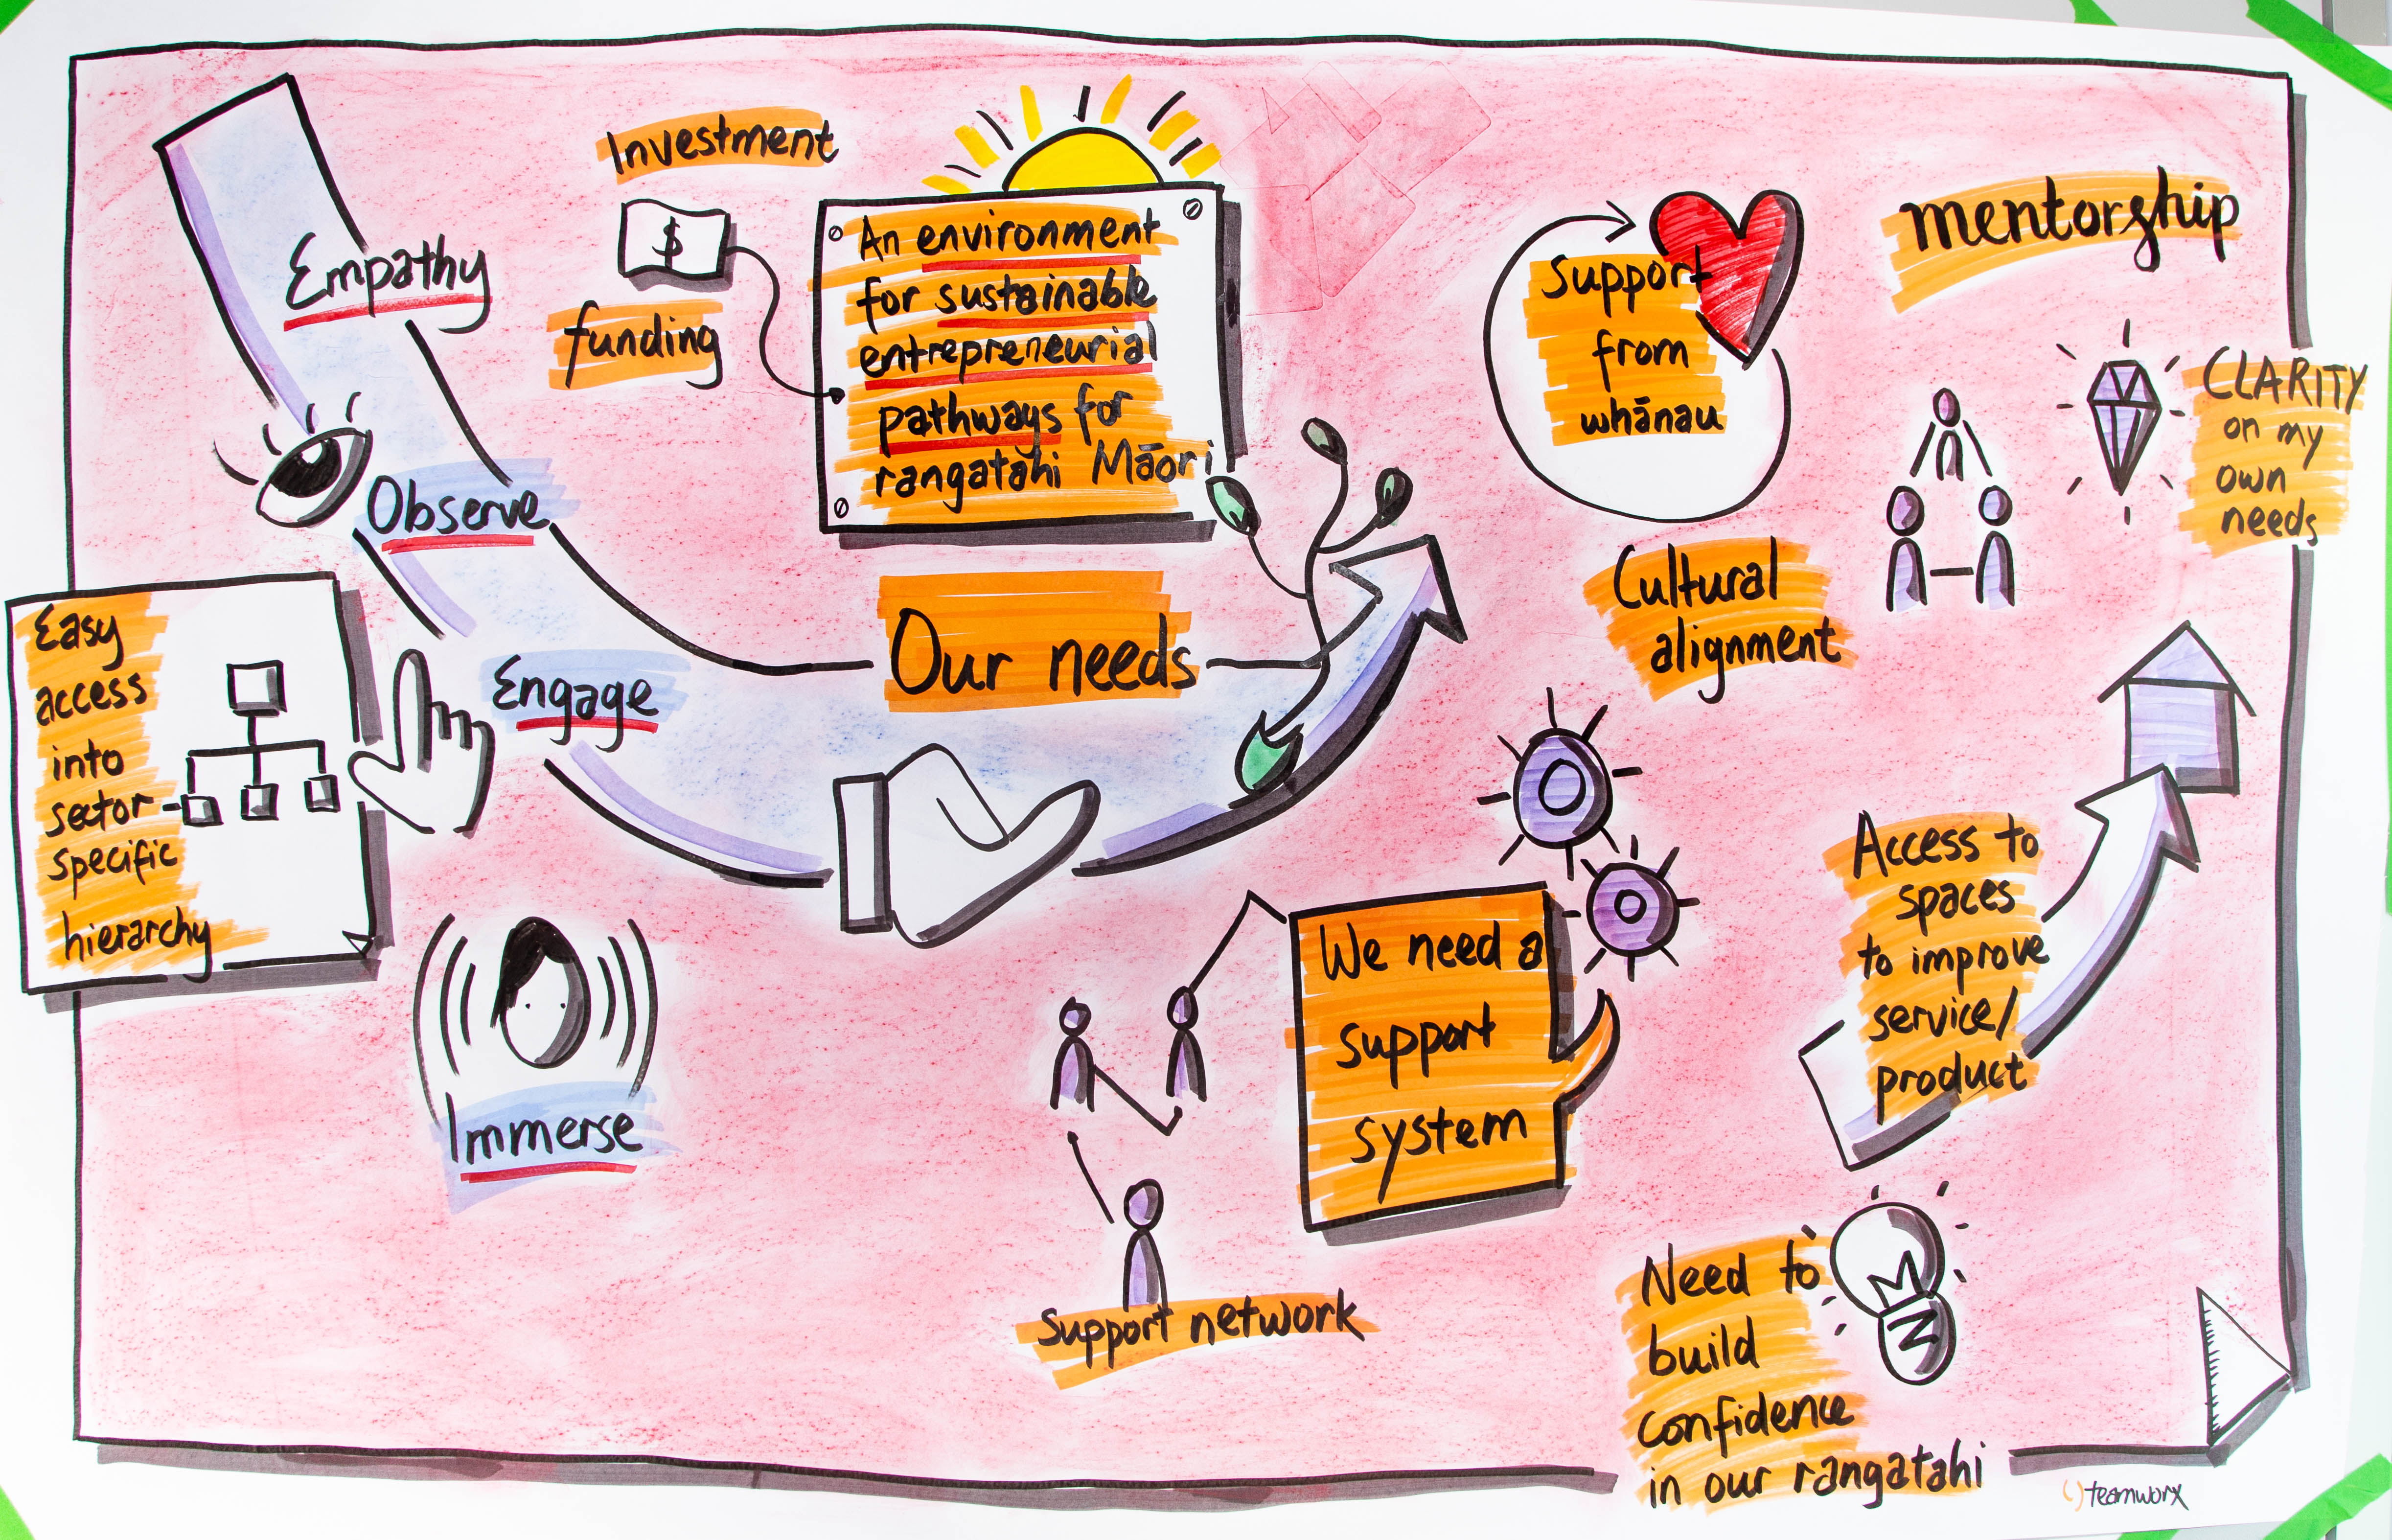 Empathy
Observe
Engage
Immerse
Easy
access
into
sector-
specific
hierarchy
Investment
$
funding
An environment
for sustainable
entrepreneurial
pathways for
rangatahi Māori
Our needs
Support
from
whānau
Cultural
alignment
mentorship
CLARITY
on my
own
needs
We need a
support
system
Support network
Access to
spaces
to improve
service/
product
Need to
build
confidence
in our rangatahi
teamworx